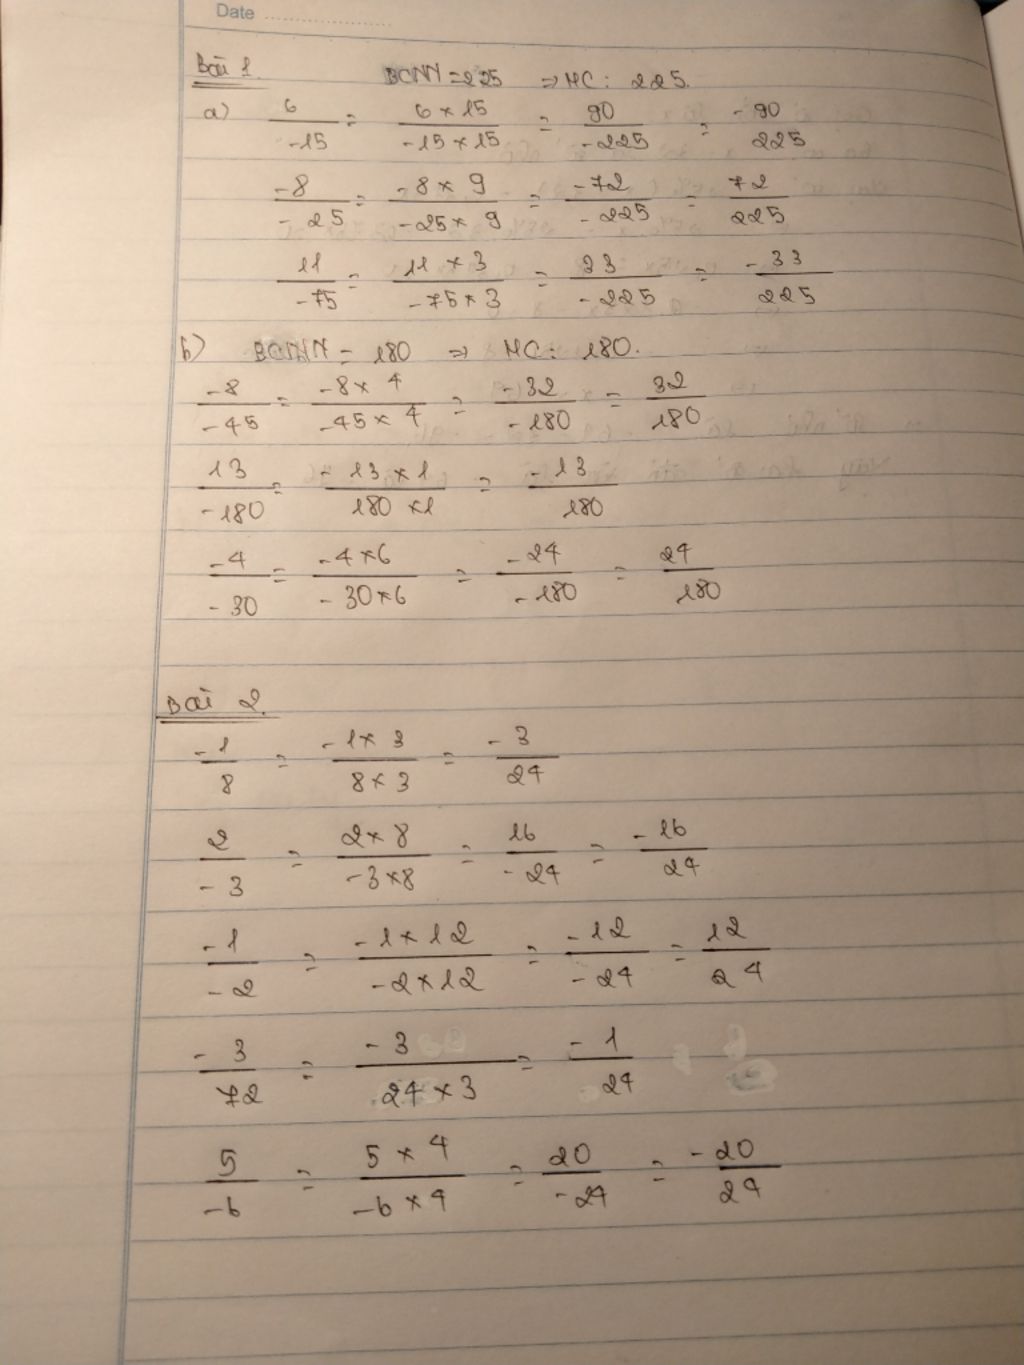 Date ....................
Bài 1. BCNN = 225 => MC: 225.
a) 6/-15 = 6×15/-15×15 = 90/-225 = -90/225
-8/-25 = -8×9/-25×9 = -72/-225 = 72/225
11/-75 = 11×3/-75×3 = 33/-225 = -33/225
b) BCNN = 180 => MC: 180.
-8/-45 = -8×4/-45×4 = -32/-180 = 32/180
13/-180 = -13×1/180×1 = -13/180
-4/-30 = -4×6/-30×6 = -24/-180 = 24/180
Bài 2.
-1/8 = -1×3/8×3 = -3/24
2/-3 = 2×8/-3×8 = 16/-24 = -16/24
-1/-2 = -1×12/-2×12 = -12/-24 = 12/24
-3/72 = -3/24×3 = -1/24
5/-6 = 5×4/-6×4 = 20/-24 = -20/24